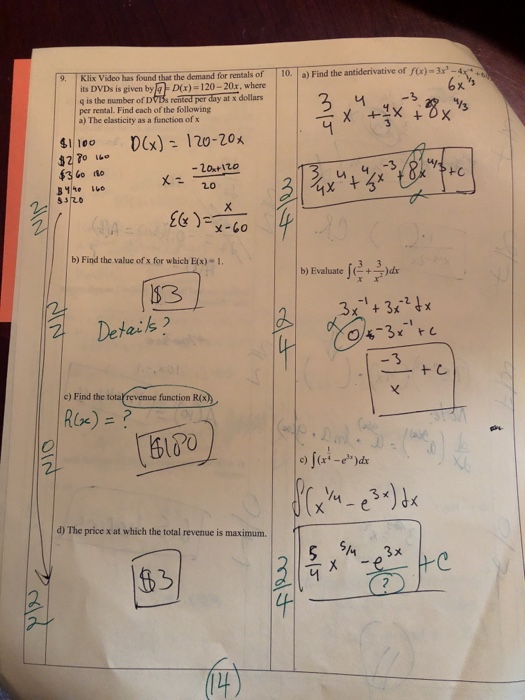 9. Klix Video has found that the demand for rentals of
its DVDs is given by q = D(x) = 120 – 20x, where
q is the number of DVDs rented per day at x dollars
per rental. Find each of the following
a) The elasticity as a function of x
$1 100
$2 80 160
$3 60 180
$4 40 160
$5 20
D(x) = 120-20x
x = -20x+120 / 20
E(x) = x / x-60
2/2
b) Find the value of x for which E(x) = 1.
$3
Details?
2/2
c) Find the total revenue function R(x).
R(x) = ?
$180
0/2
d) The price x at which the total revenue is maximum.
$3
2/2
10. a) Find the antiderivative of f(x) = 3x³ – 4x⁻⁴ + 6
6x^1/3
3/4 x⁴ + 4/3 x⁻³ + 8x^4/3
3/4 x⁴ + 4/3 x⁻³ + 8x^4/3 + c
3/4
b) Evaluate ∫(3/x + 3/x²)dx
3x⁻¹ + 3x⁻² dx
0 - 3x⁻¹ + c
-3/x + c
2/4
c) ∫(x^1/4 – e^3x)dx
∫(x^1/4 - e^3x)dx
5/4 x^5/4 - e^3x / (?) + C
3/4
14